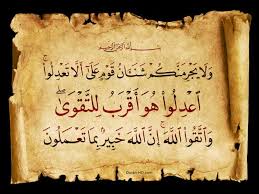 بسم الله الرحمن الرحيم
وَلَا يَجْرِمَنَّكُمْ شَنَآنُ قَوْمٍ عَلَىٰ أَلَّا تَعْدِلُوا ۚ
اعْدِلُوا هُوَ أَقْرَبُ لِلتَّقْوَىٰ ۖ
وَاتَّقُوا اللَّهَ ۚ إِنَّ اللَّهَ خَبِيرٌ بِمَا تَعْمَلُونَ